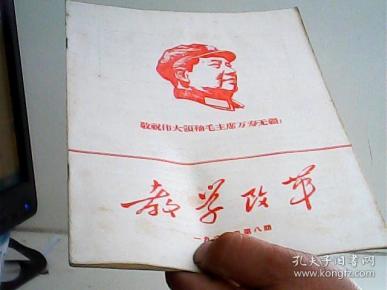 敬祝伟大領袖毛主席万寿无疆!
教学改革
第八期
孔夫子旧书网